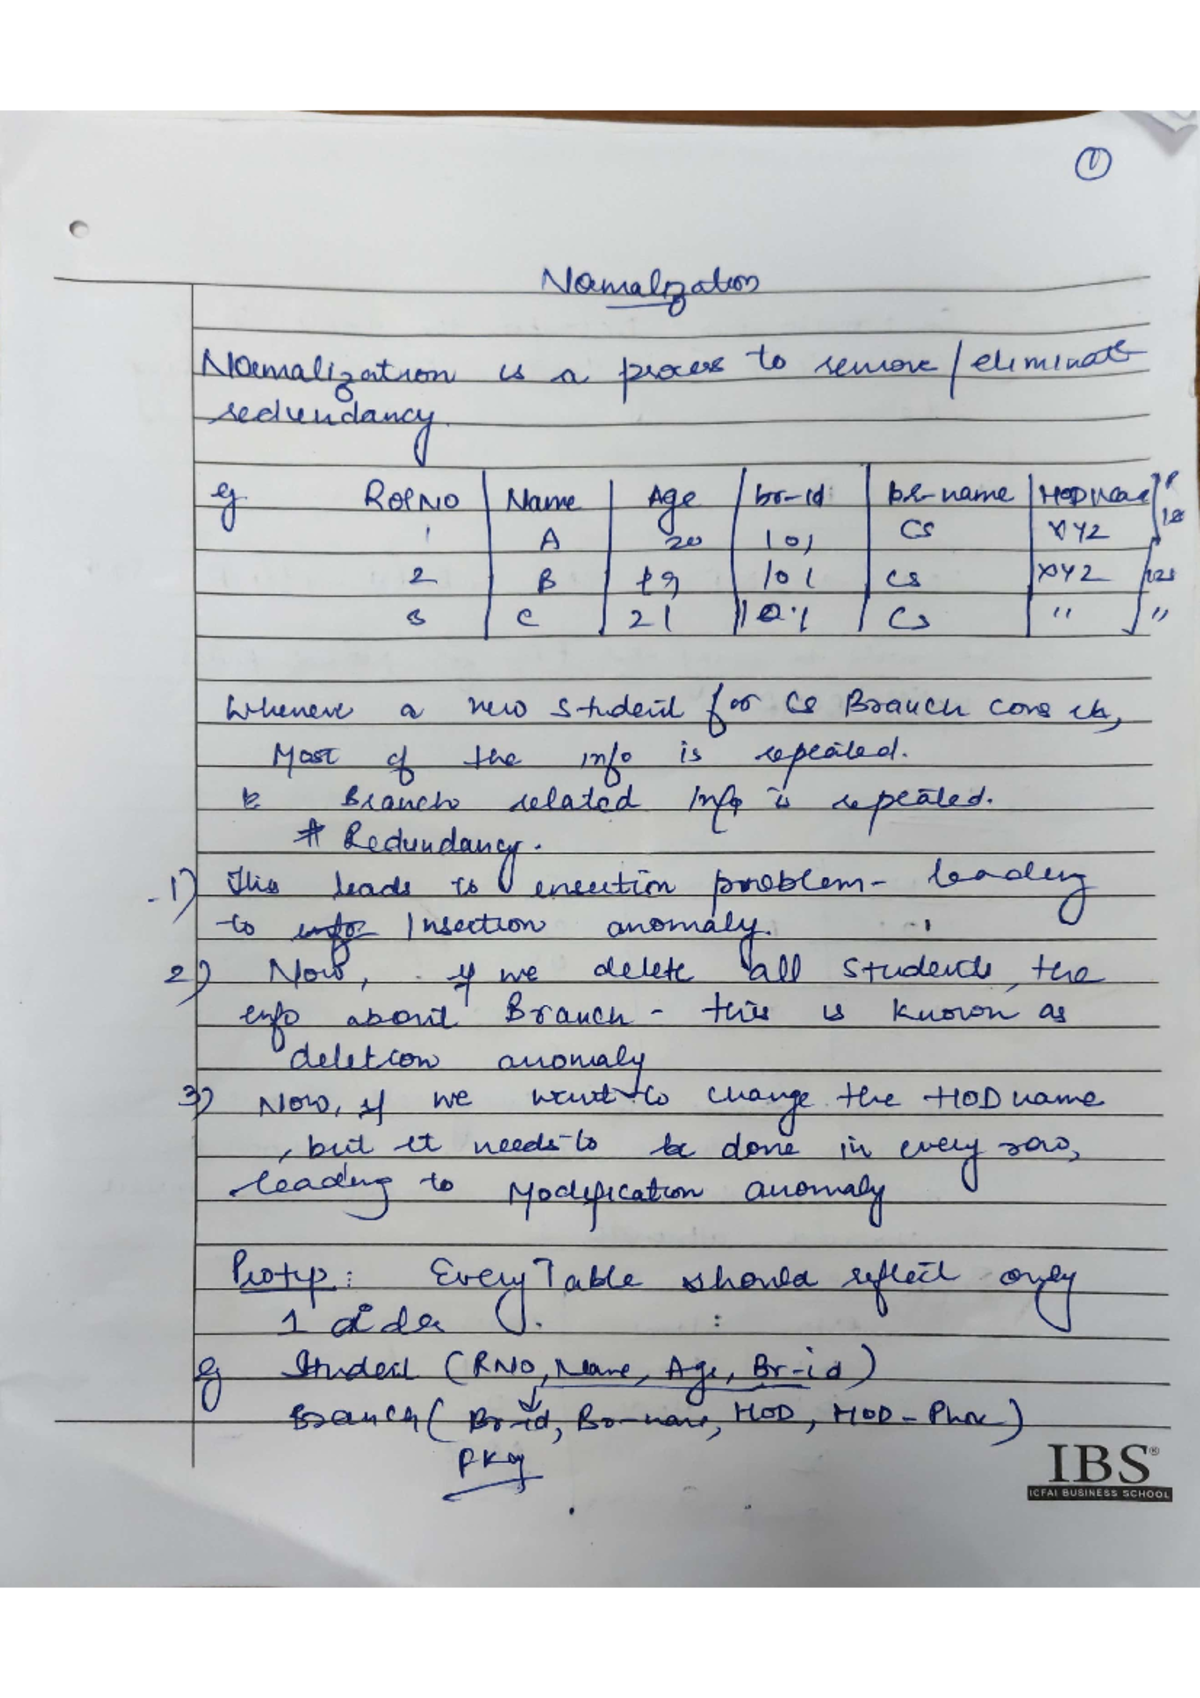 1
Normalization
Normalization is a process to remove / eliminate
redundancy.
eg RollNO Name Age br-id br-name HOD
1 A 20 101 CS XYZ
2 B 19 101 CS XYZ 123
3 C 21 101 CS " "
Whenever a new student for CS Branch
Most of the info is repeated.
Branch related Info is repeated.
# Redundancy.
1) This leads to insertion problem - leading
to Insertion anomaly.
2) Now, if we delete all students, the
info about Branch - this is known as
deletion anomaly
3) Now, if we want to change the HOD name
, but it needs to be done in every row,
leading to Modification anomaly
Every Table should reflect only
1 idea.
eg Student (RNO, Name, Age, Br-id)
Branch (Br-id, Br-name, HOD, HOD-Phn)
PKey
IBS®
ICFAI BUSINESS SCHOOL